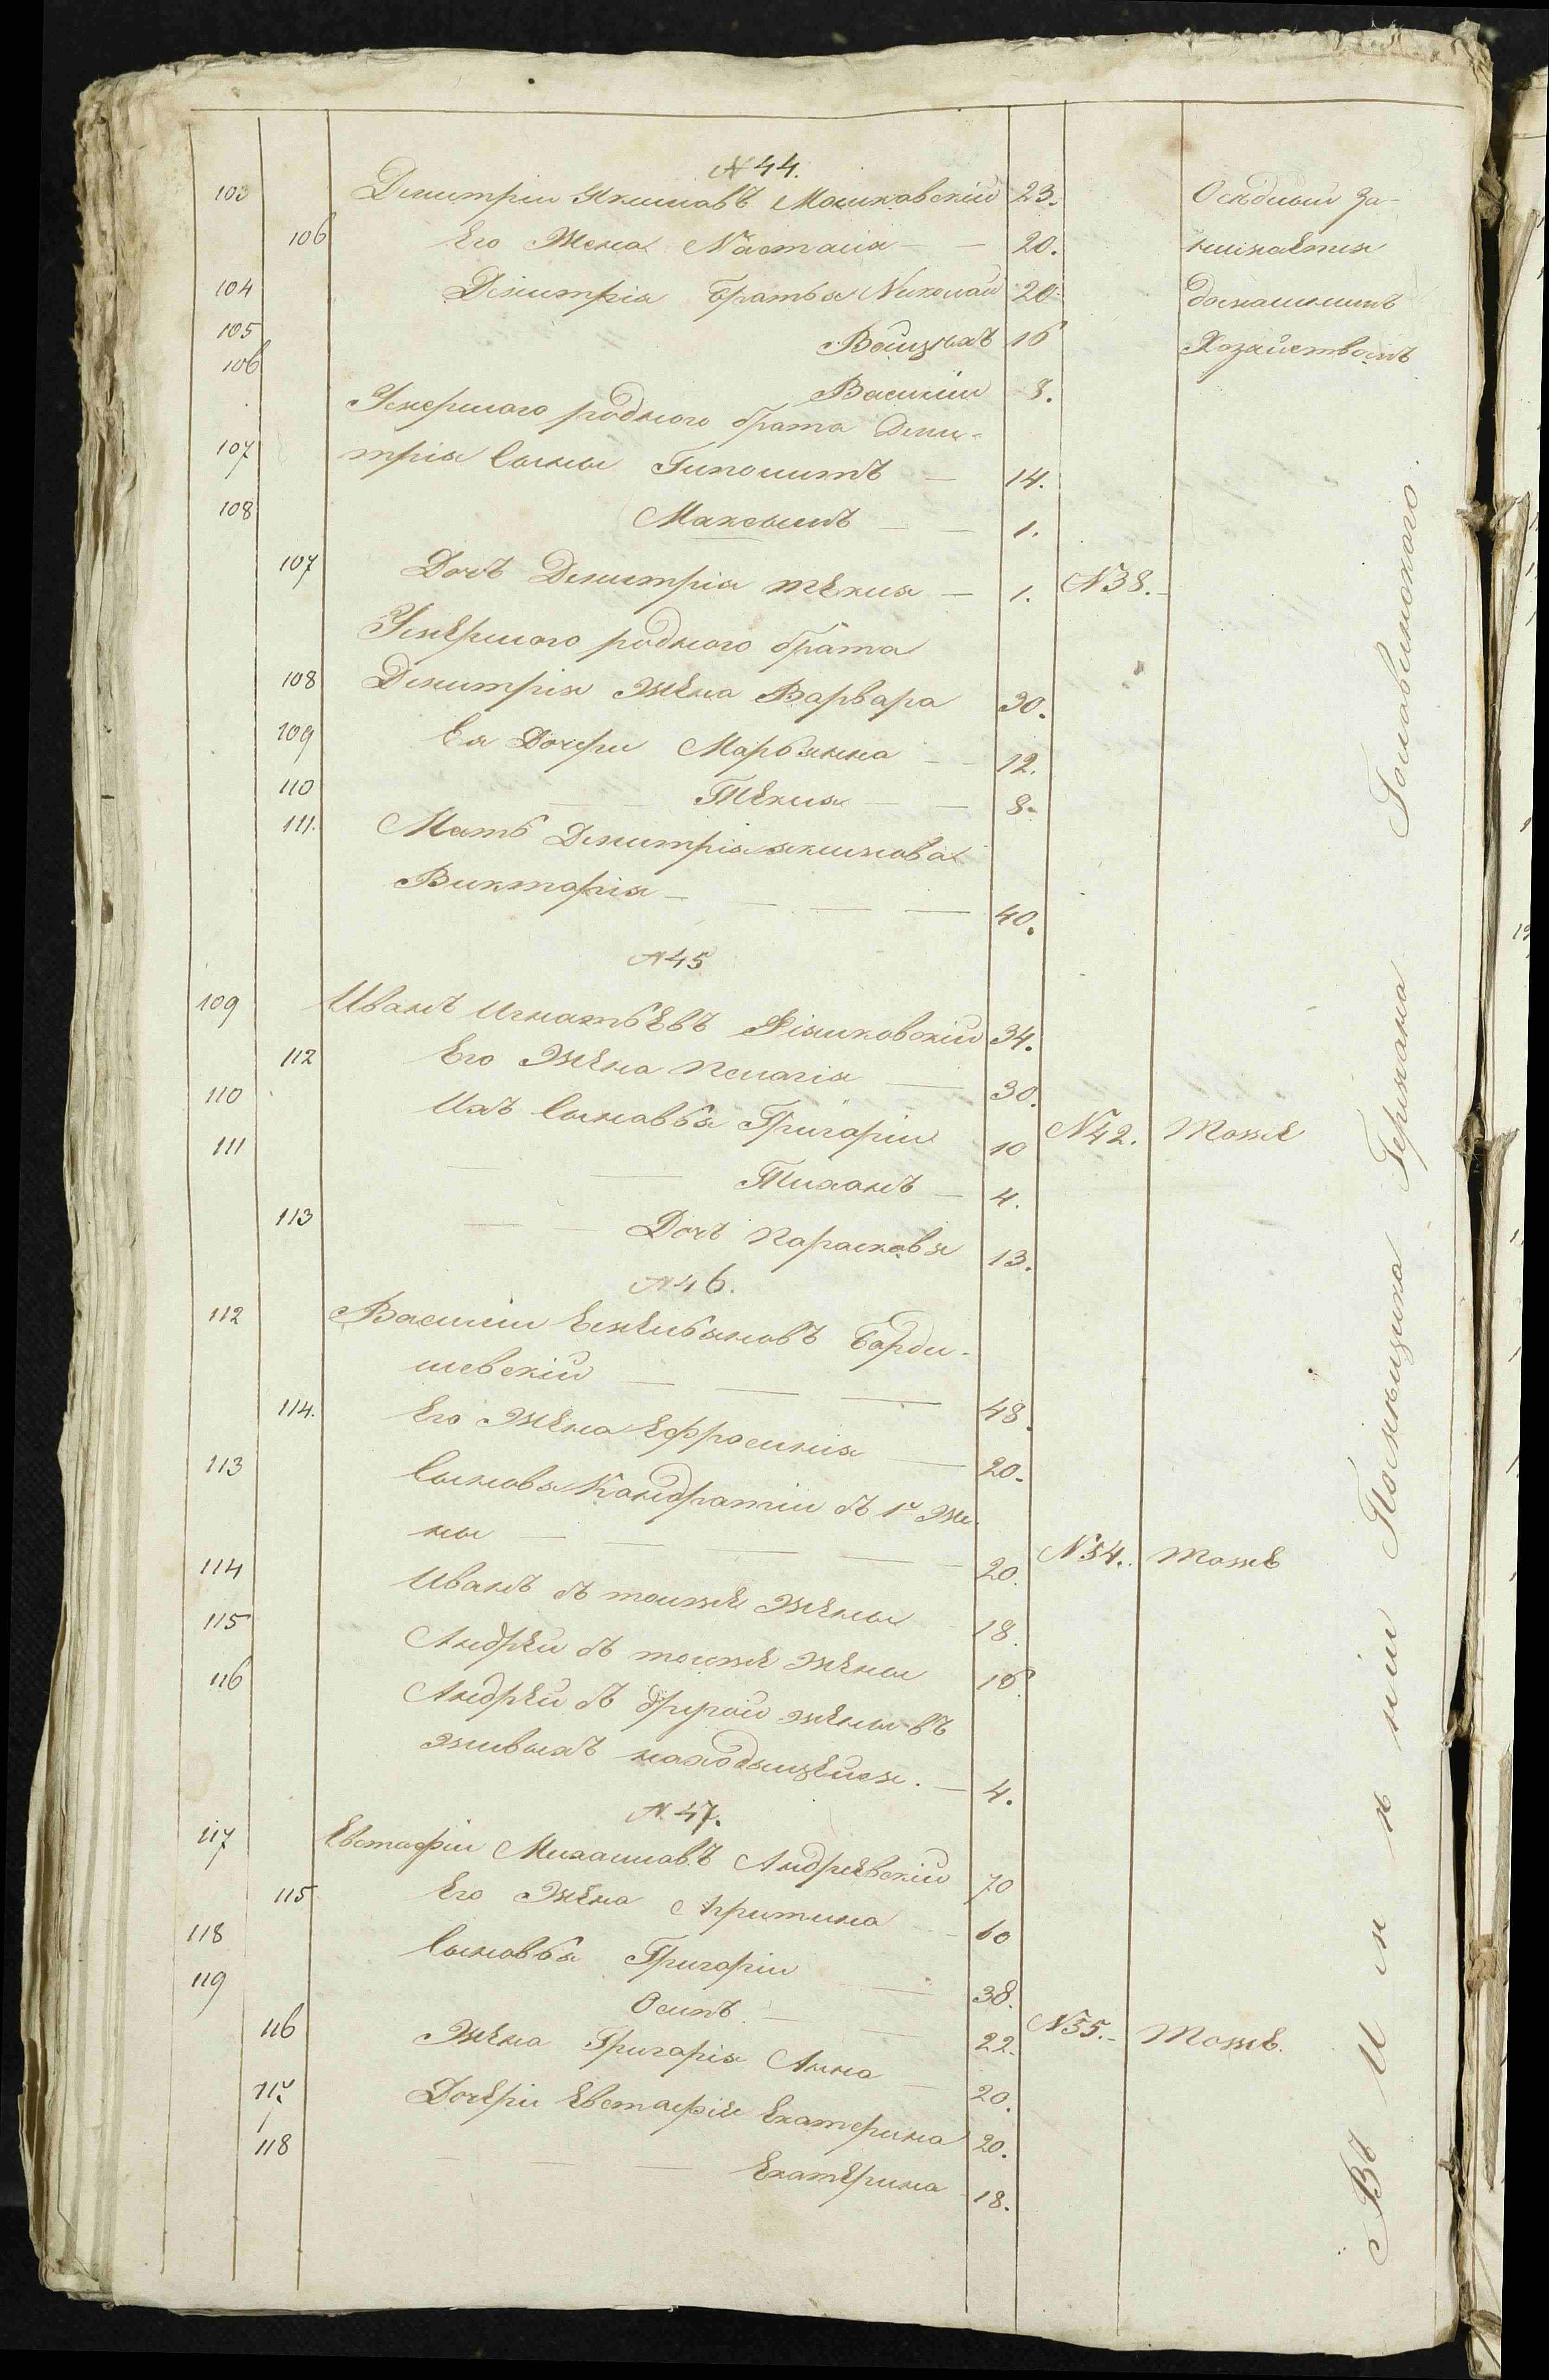 N 44.
103 Димитріи Якимовъ Мошковскій 23. Осѣдлый за-
106 Его Жена Настасія 20. нимается
104 Димитрія братья Николай 20. домашнимъ
105 Войцѣхъ 16 Хозяйствомъ
106 Василіи 8.
Умершаго роднаго брата Дими-
107 трія сыны Гиполитъ 14.
108 Максымъ 1.
107 Дочь Димитрія тѣкля 1. N38.
Умершаго роднаго брата
108 Димитрія жена Варвара 30.
109 Ея Дочери Марьянна 12.
110 Тѣкля 8.
111. Мать Димитрія якимова
Викторія 40.
N 45
109 Иванъ Игнатьевъ 34.
112 Его Жена Пелагія 30.
110 Ихъ сыновья Григоріи 10 N42. Тоже
111 Тихонъ 4.
113 Дочь Парасковя 13.
N 46.
112 Василіи Емельяновъ Борди-
шевскій 48.
114. Его Жена Ефросинія 20.
113 сыновя Кондратіи съ 1й же-
ны 20. N54. Тоже
114 Иванъ съ тоиже жены 18.
115 Андреи съ тоиже жены 16.
116 Андреи съ другой жены въ
живыхъ находящейся. 4.
N. 47.
117 Евстафіи Михаиловъ Андреевскій 70
115 Его Жена 60
118 сыновья Григоріи 38.
119 Осипъ 22. N55. Тоже.
116 Жена Григорія Анна 20.
117 Дочери Евстафія Екатерина 20.
118 Екатерина 18.
Въ Имѣніи Помѣщика Германа Головинскаго.